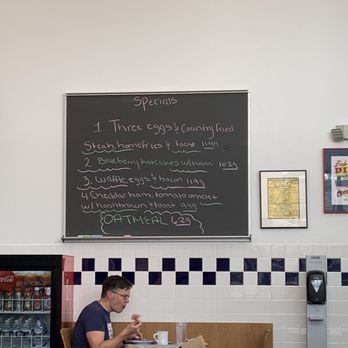 Specials
1. Three eggs & Country fried
Steak, homefries & toast 11.99
2. Blueberry hotcakes w/ham 10.29
3. Waffle, eggs, & bacon 11.99
4. Cheddar ham, tomato omelet
w/ hashbrown & toast 9.99
OATMEAL 6.29
Coca-Cola
ICE COLD